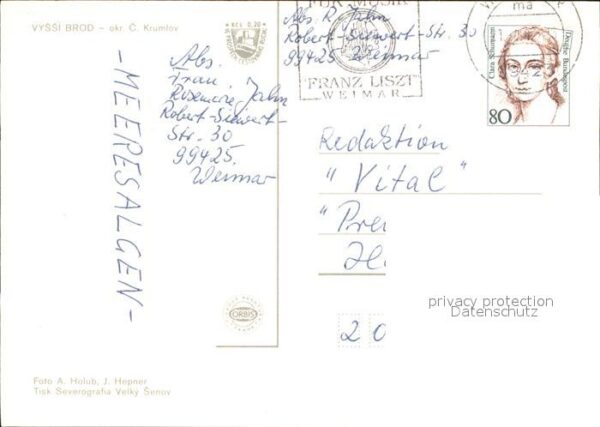 VYŠŠÍ BROD – okr. Č. Krumlov
Kčs 0,20
Abs.
Frau
Rosemarie Jahn
Robert-Siewert-
Str. 30
99425
Weimar
-MEERESALGEN-
ORBIS
Foto A. Holub, J. Hepner
Tisk Severografia Velký Šenov
Abs. R. Jahn
Robert-Siewert-Str. 30
99425 Weimar
FÜR MUSIK
"FRANZ LISZT"
WEIMAR
Clara Schumann
Deutsche Bundespost
80
Redaktion
"Vital"
"Pre
20
privacy protection
Datenschutz